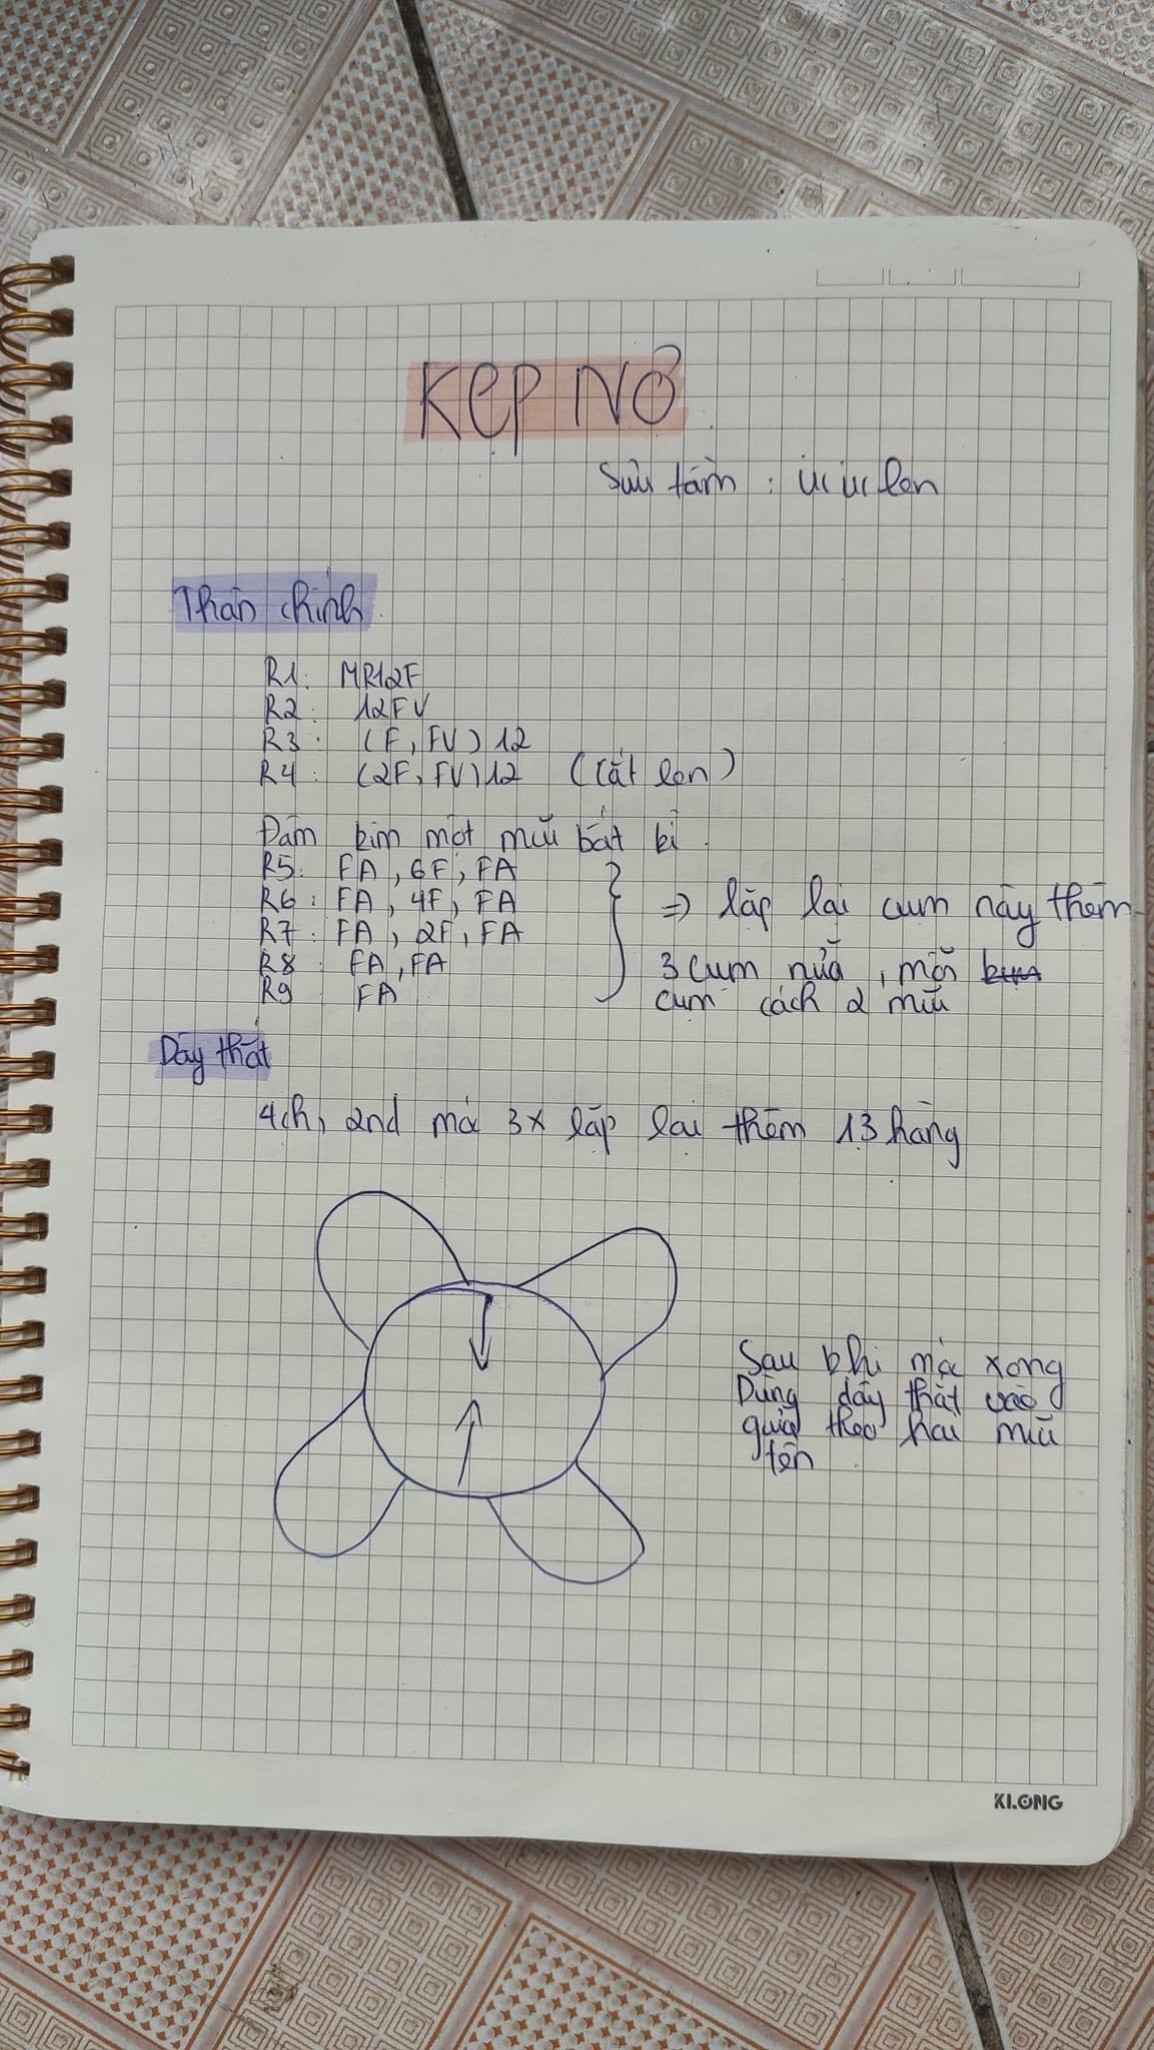 Kẹp NƠ
Sưu tầm : Ủi ủi len
Thân chính
R1: MR12F
R2: 12FV
R3: (F, FV)12
R4: (2F, FV)12 (Cắt len)
Đâm kim một mũi bất kì.
R5: FA, 6F, FA
R6: FA, 4F, FA
R7: FA, 2F, FA
R8: FA, FA
R9 FA
} => lặp lại cụm này thêm
3 cụm nữa, mỗi
cụm cách 2 mũi
Dây thắt
4ch, 2nd móc 3x lặp lại thêm 13 hàng
Sau khi móc xong
Dùng dây thắt vào
giữa theo hai mũi
tên
KLONG